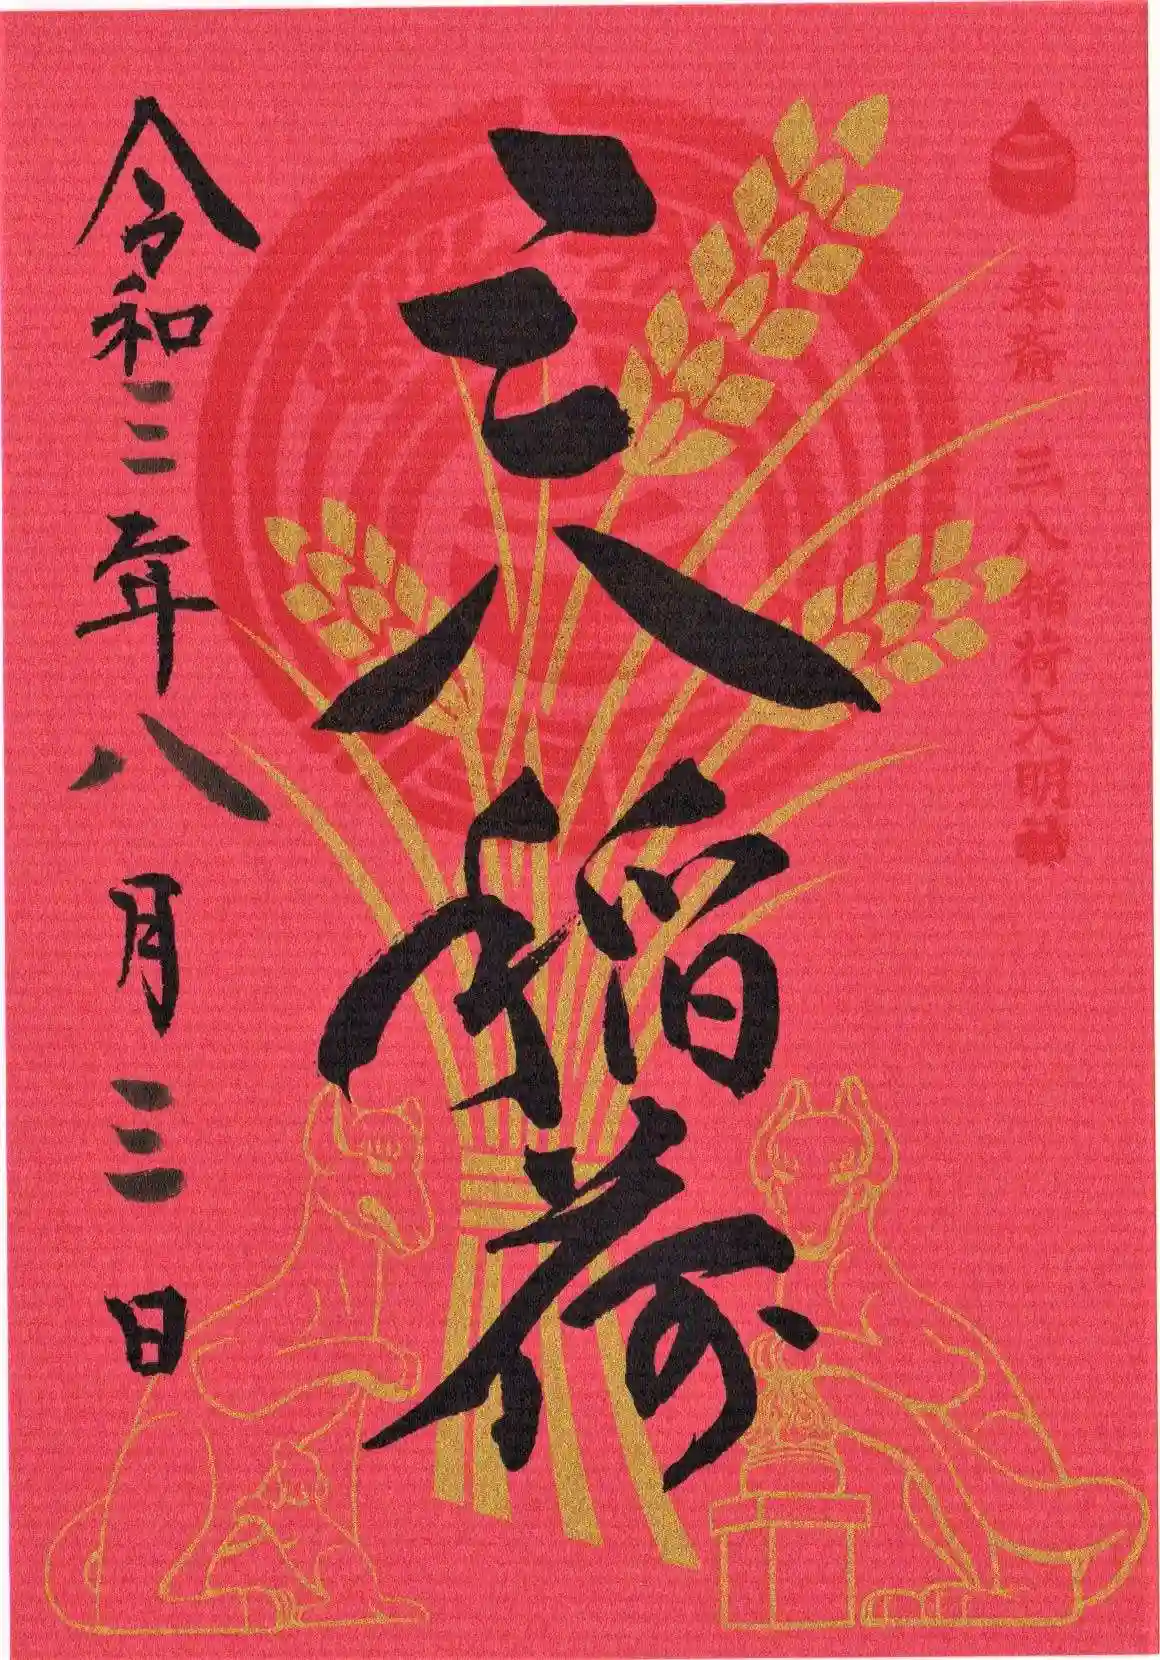 奉斎 三八稲荷大明神
三八稲荷
令和三年八月三日